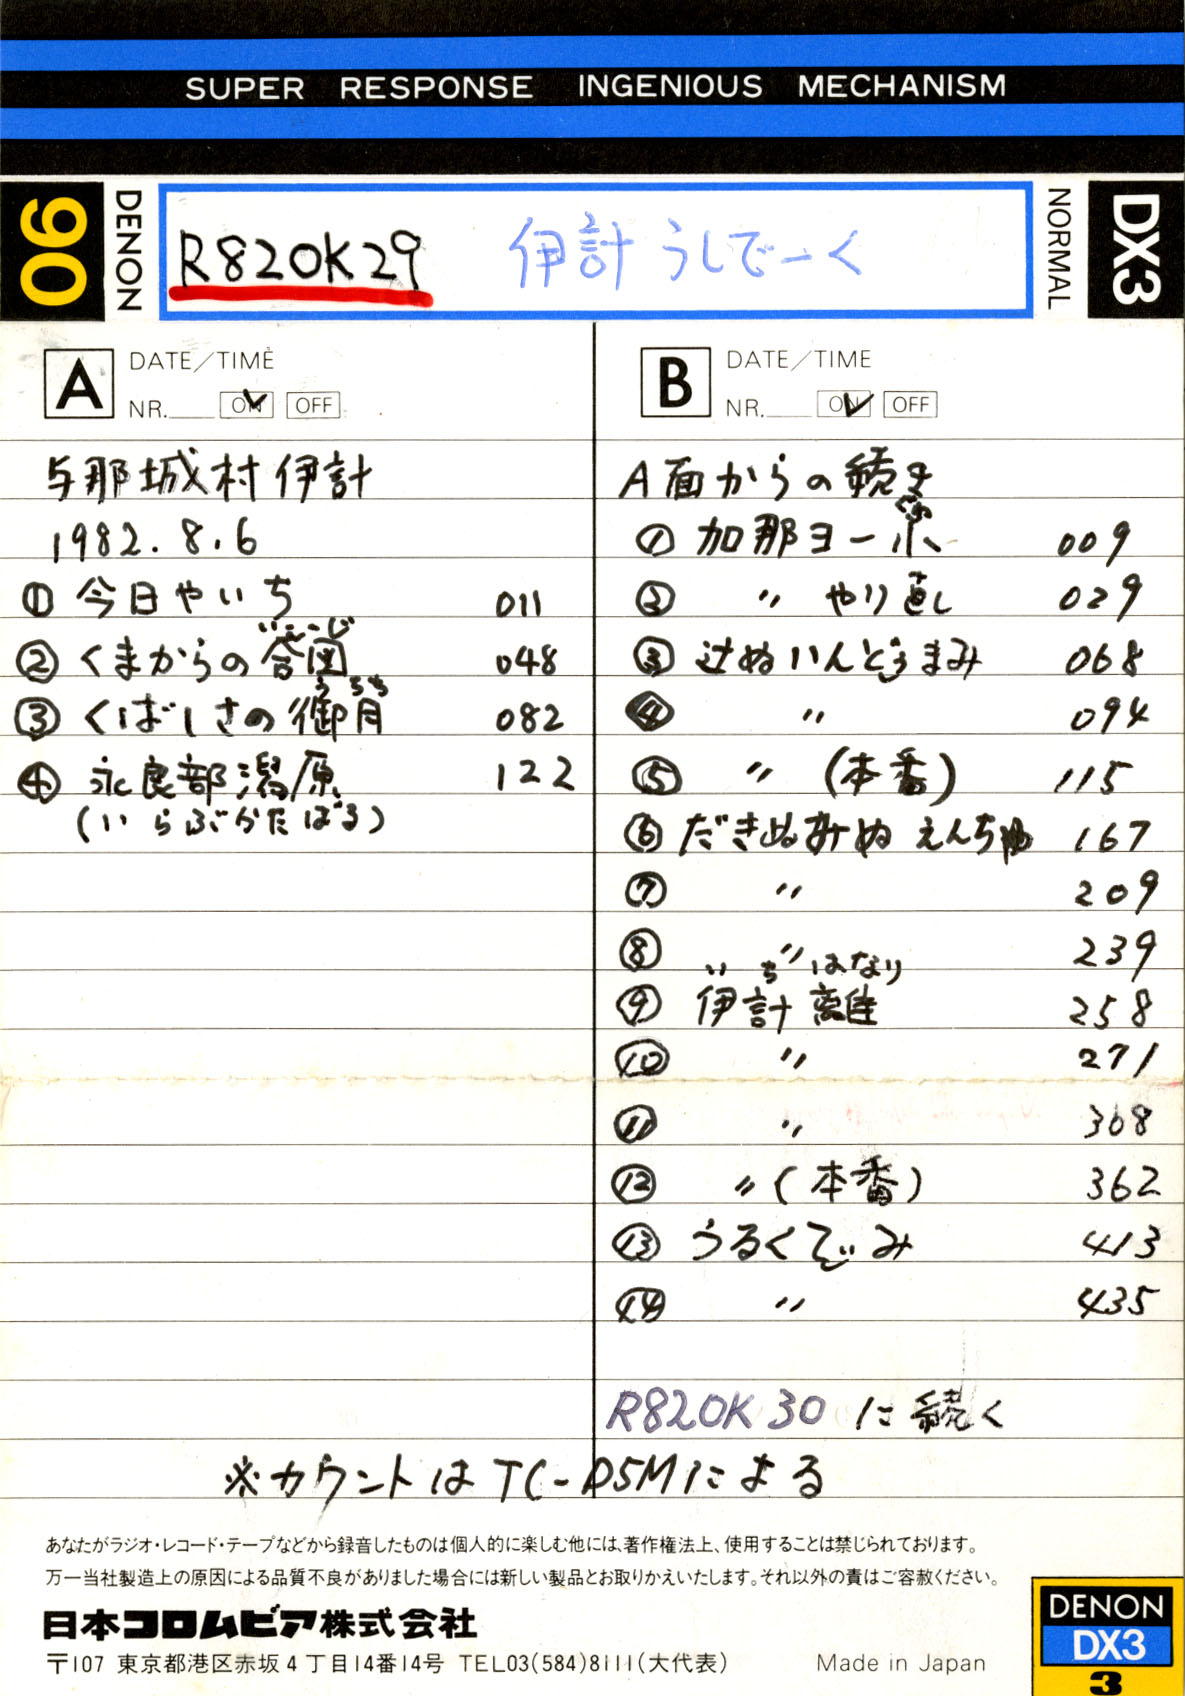 SUPER RESPONSE INGENIOUS MECHANISM
90
DENON
R820K29 伊計 うしでーく
NORMAL
DX3
A DATE/TIME
NR. ON OFF
与那城村伊計
1982.8.6
① 今日やいち 011
いこーじ
② くまからの 048
うちち
③ くばしさの御月 082
④ 永良部潟原 122
(いらぶかたばる)
B DATE/TIME
NR. ON OFF
A面からの続き
① 加那ヨー 009
② 〃 やり直し 029
③ 辻ぬいんどぅまみ 068
④ 〃 094
⑤ 〃 (本番) 115
⑥ だきぬみぬ えんちゅ 167
⑦ 〃 209
⑧ 〃 239
いちはなり
⑨ 伊計離 258
⑩ 〃 271
⑪ 〃 308
⑫ 〃 (本番) 362
⑬ うるくでぃみ 413
⑭ 〃 435
R820K30 に続く
※カウントはTC-D5Mによる
あなたがラジオ・レコード・テープなどから録音したものは個人的に楽しむ他には、著作権法上、使用することは禁じられております。
万一当社製造上の原因による品質不良がありました場合には新しい製品とお取りかえいたします。それ以外の責はご容赦ください。
日本コロムビア株式会社
〒107 東京都港区赤坂4丁目14番14号 TEL03(584)8111(大代表) Made in Japan
DENON
DX3
3